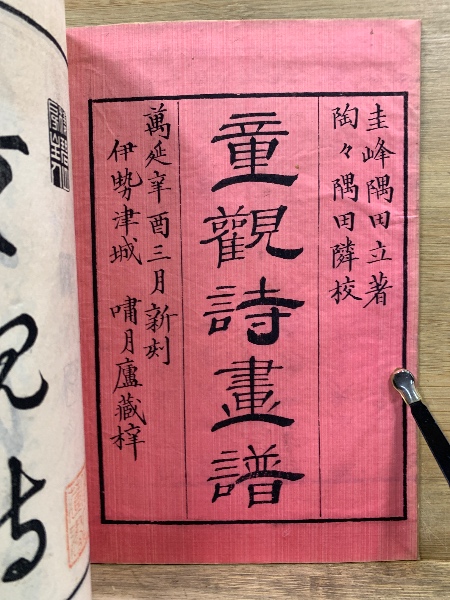 圭峰隅田立著
陶々隅田隣校
童觀詩畫譜
萬延辛酉三月新刻
伊勢津城 嘯月廬藏梓